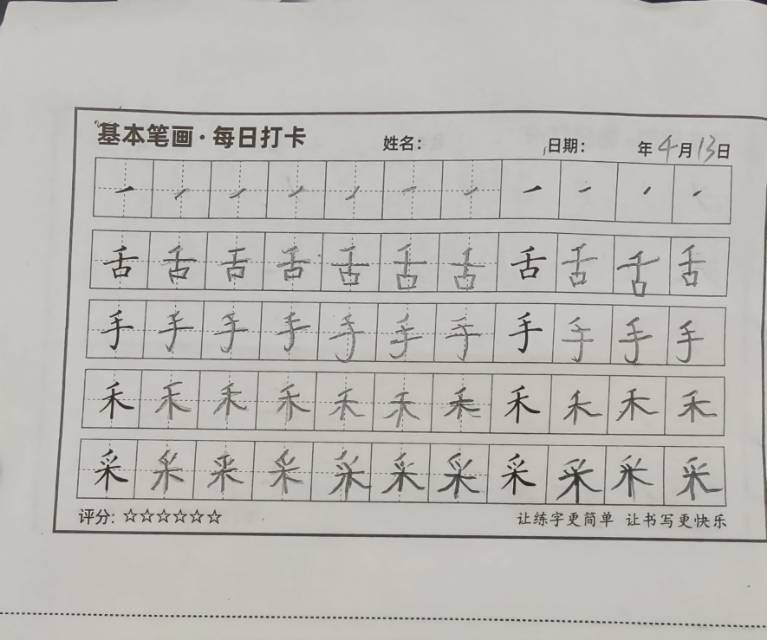 基本笔画·每日打卡 姓名： 日期： 年4月13日
舌舌舌舌舌舌舌舌舌舌舌
手手手手手手手手手手手
禾禾禾禾禾禾禾禾禾禾禾
采采采采采采采采采采采
评分：☆☆☆☆☆☆ 让练字更简单 让书写更快乐